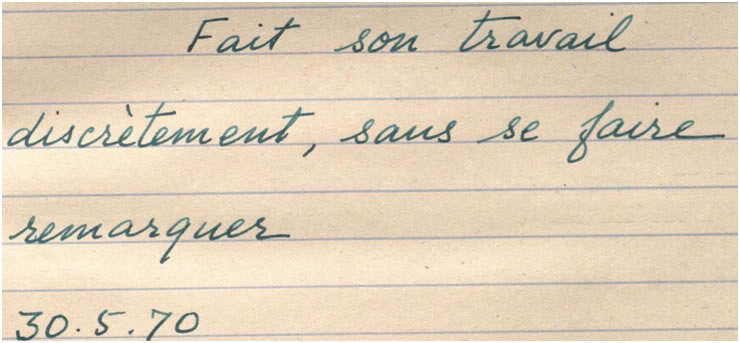 Fait son travail
discrètement, sans se faire
remarquer
30.5.70